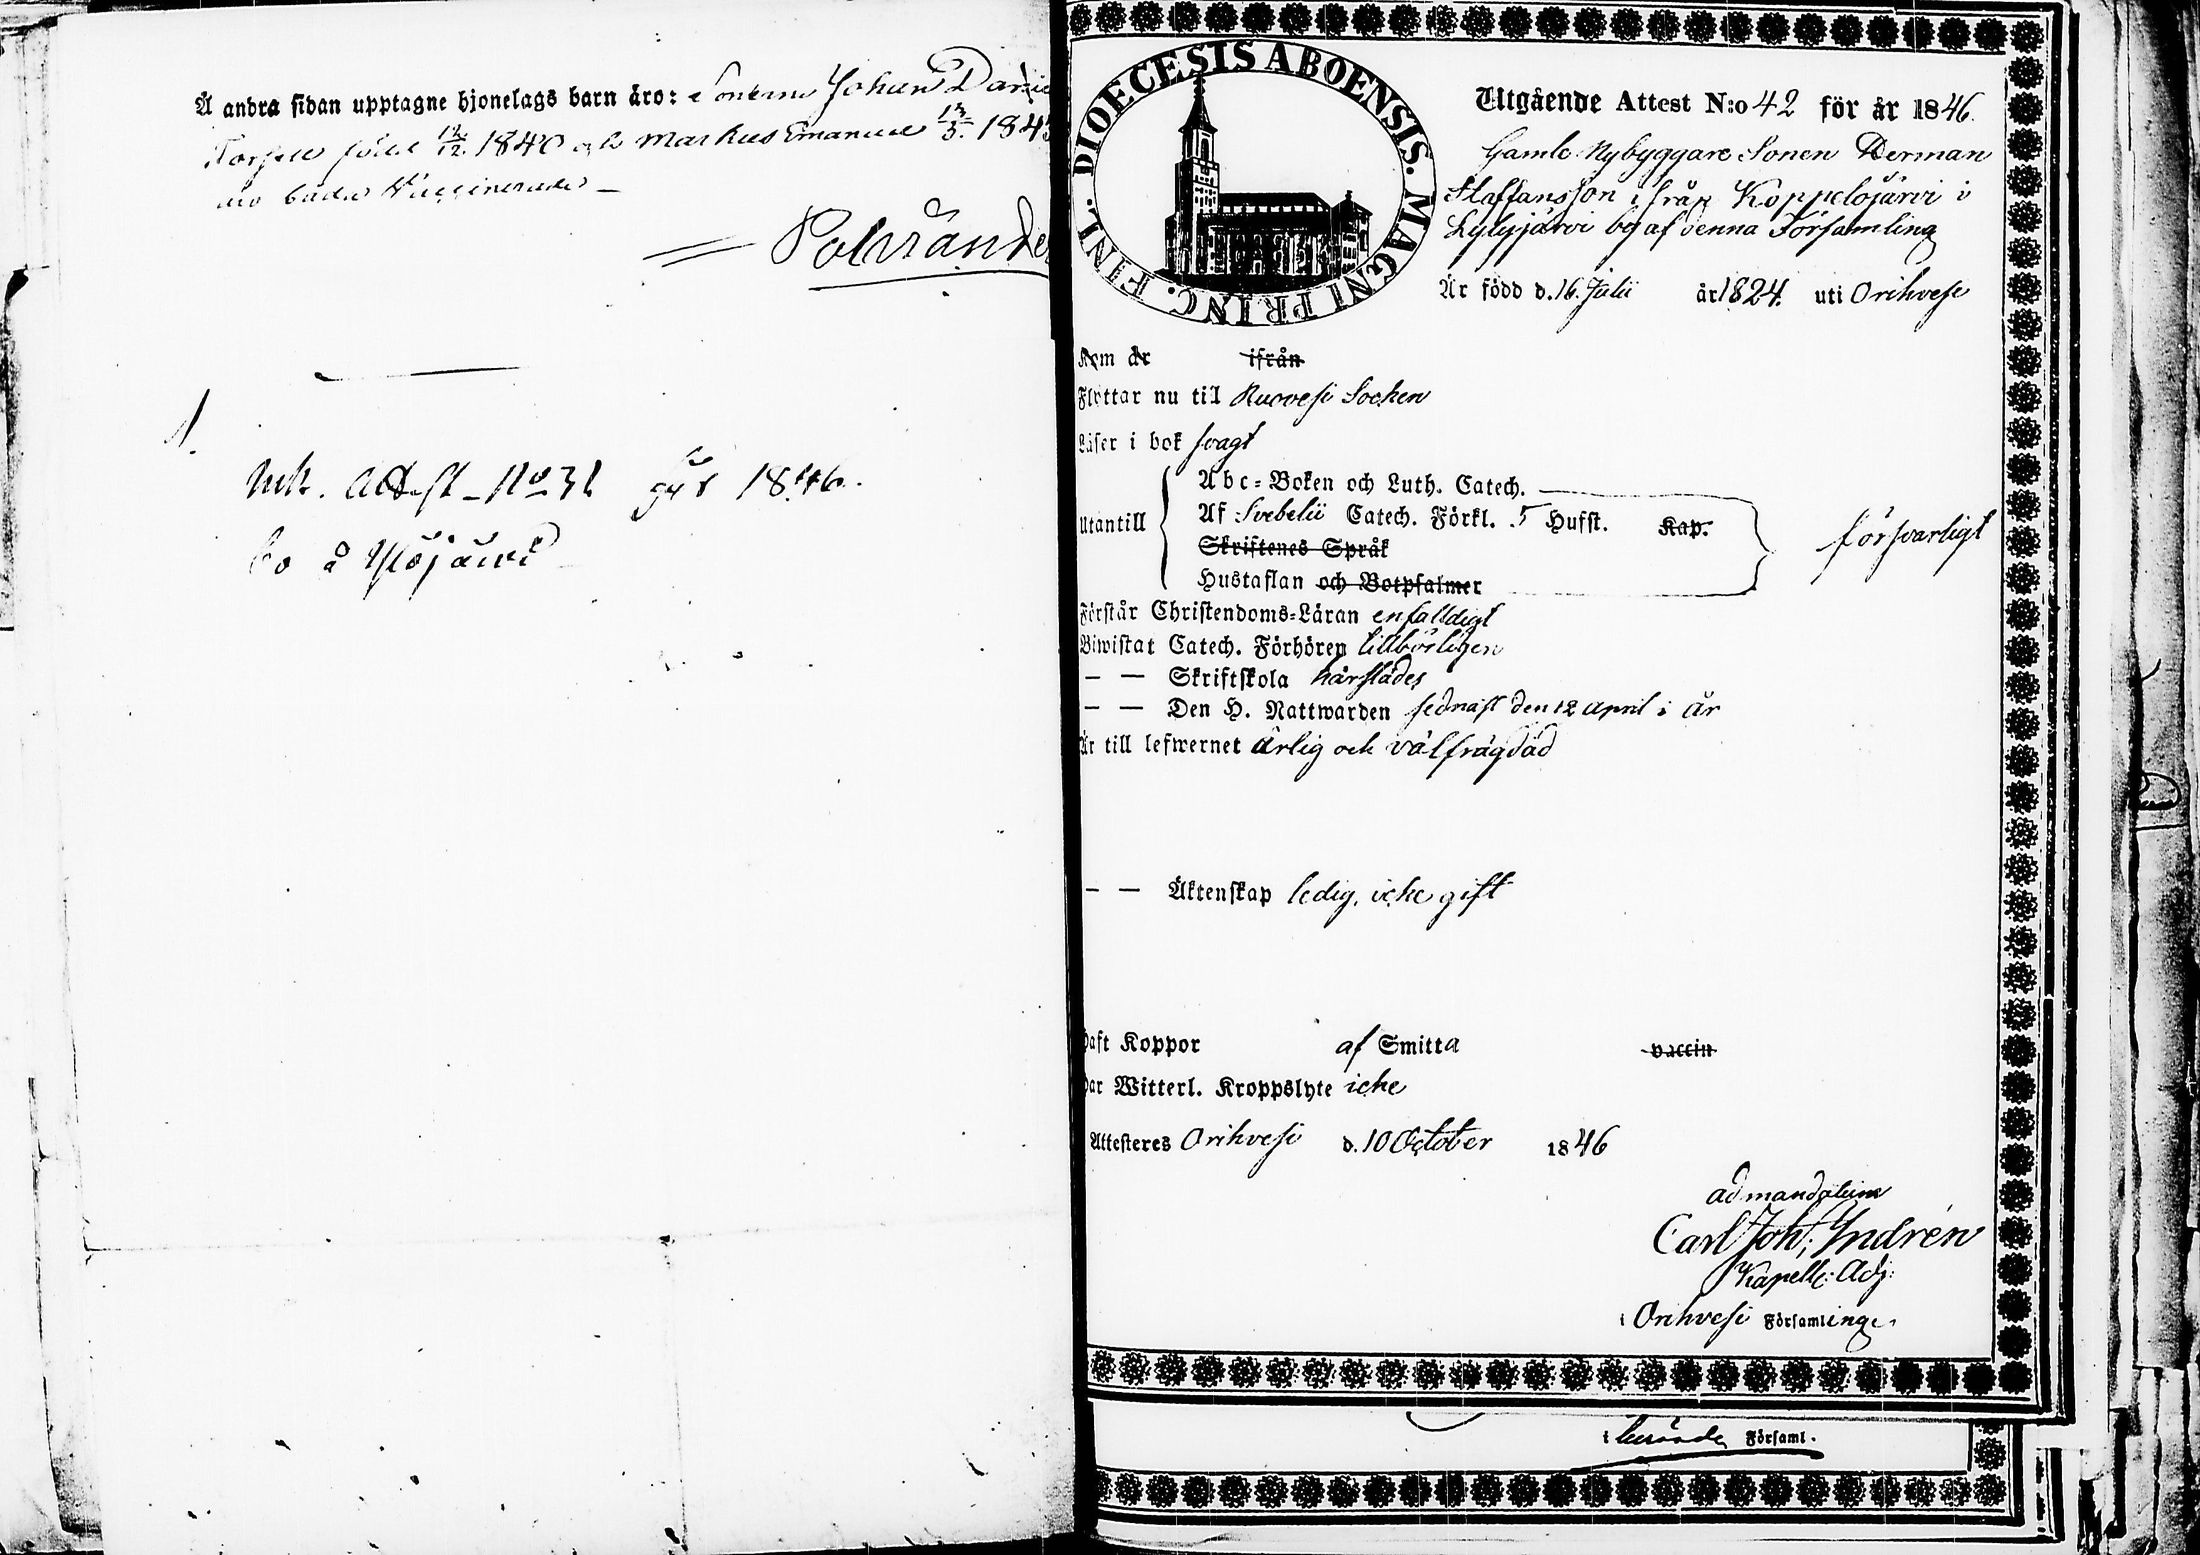 Å andra sidan upptagne hjonelags barn äro: Sönerne Johan Daniel
född 12/12 1840 och Markus Emanuel 13/3 184
äro både Vaccinerade
Polviander
1.
Ink. Attest No 31 för 1846.
bo å Ylöjärvi
DIOECESIS ABOENSIS. MAGNI PRINC. FINL.
Utgående Attest N:o 42 för år 1846.
Gamle Nybyggare Sonen Herman
Staffansson ifrån Koppelojärvi i
Lylyjärvi by af denna Församling
Är född d. 16 Julii år 1824. uti Orihvesi
Kom år ifrån
Flyttar nu til Ruovesi Socken
Läser i bok svagt
Abc-Boken och Luth. Catech.
Utantill Af Svebelii Catech. Förkl. 5 Hufst. Kap. försvarligt
Skriftenes Språk
Hustaflan och Botpsalmer
Förstår Christendoms-Läran enfalldigt
Biwistat Catech. Förhören tillbörligen
— — Skriftskola härstädes
— — Den H. Nattwarden sednast den 12 April i år
Är till lefwernet ärlig och välfrägdad
— — Äktenskap ledig, icke gift
Haft Koppor af Smitta vaccin
Har Witterl. Kroppslyte icke
Attesteres Orihvesi d. 10 October 1846
ad mandatum
Carl Joh: Indrén
Kapells: Adj:
i Orihvesi Församlinge
i Församl.